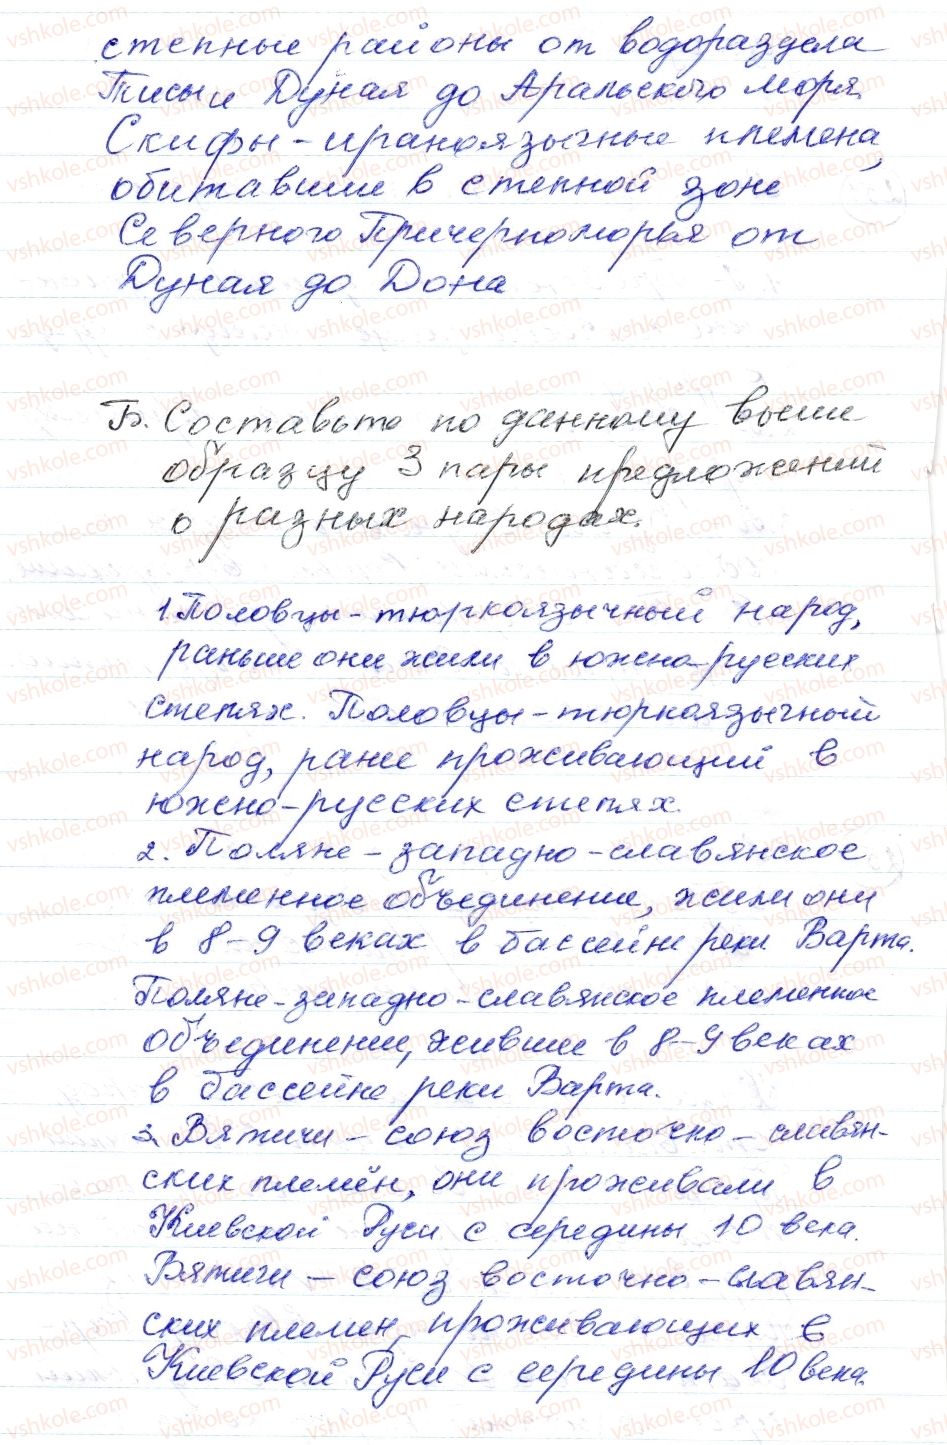 степные районы от водораздела
Тисы и Дуная до Аральского моря.
Скифы - ираноязычные племена,
обитавшие в степной зоне
Северного Причерноморья от
Дуная до Дона
Б. Составьте по данному выше
образцу 3 пары предложений
о разных народах.
1. Половцы - тюркоязычный народ,
раньше они жили в южно-русских
степях. Половцы - тюркоязычный
народ, ранее проживающий в
южно-русских степях.
2. Поляне - западно-славянское
племенное объединение, жили они
в 8-9 веках в бассейне реки Варта.
Поляне - западно-славянское племенное
объединение, жившие в 8-9 веках
в бассейне реки Варта.
3. Вятичи - союз восточно-славян-
ских племён, они проживали в
Киевской Руси с середины 10 века.
Вятичи - союз восточно-славян-
ских племен, проживающих в
Киевской Руси с середины 10 века.